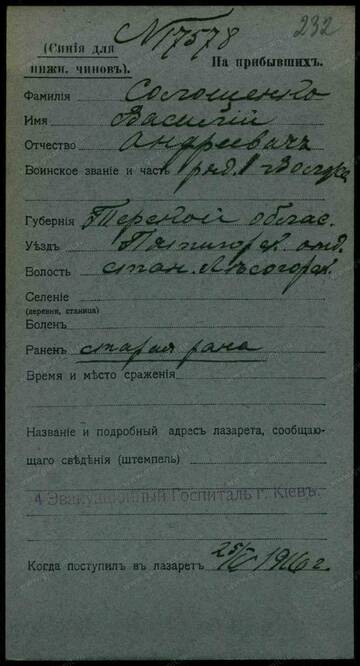 232
(Синія для нижн. чиновъ).
N 17578
На прибывшихъ.
Фамилія Солошенко
Имя Василій
Отчество Андреевичъ
Воинское званіе и часть ряд. 1
Губернія Терской облас.
Уѣздъ Пятигорск. отд.
Волость стан. Лысогорск.
Селеніе
(деревня, станица)
Боленъ
Раненъ старая рана
Время и мѣсто сраженія
Названіе и подробный адресъ лазарета, сообщаю-
щаго свѣдѣнія (штемпель)
4 Эвакуаціонный Госпиталь г. Кіевъ.
Когда поступилъ въ лазаретъ 1916 г.